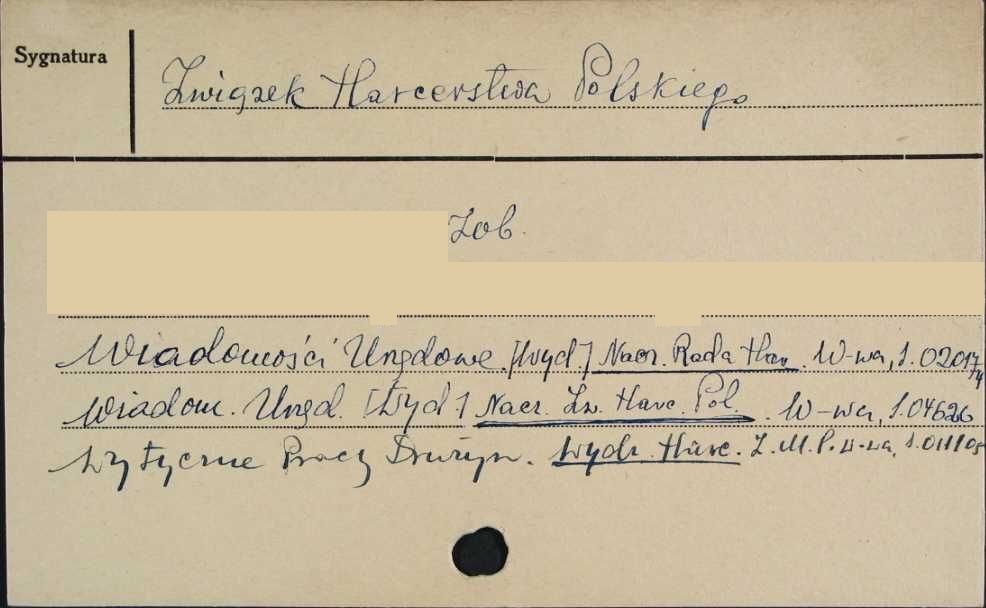 Sygnatura
Związek Harcerstwa Polskiego
Zob.
Wiadomości Urzędowe. [Wyd.] Nacz. Rada Harc. W-wa, S.02017/4
Wiadom. Urzęd. [Wyd.] Nacz. Zw. Harc. Pol. W-wa, S.04626
Wytyczne Pracy Drużyn. Wydz. Harc. Z.M.P. W-wa, S.011105